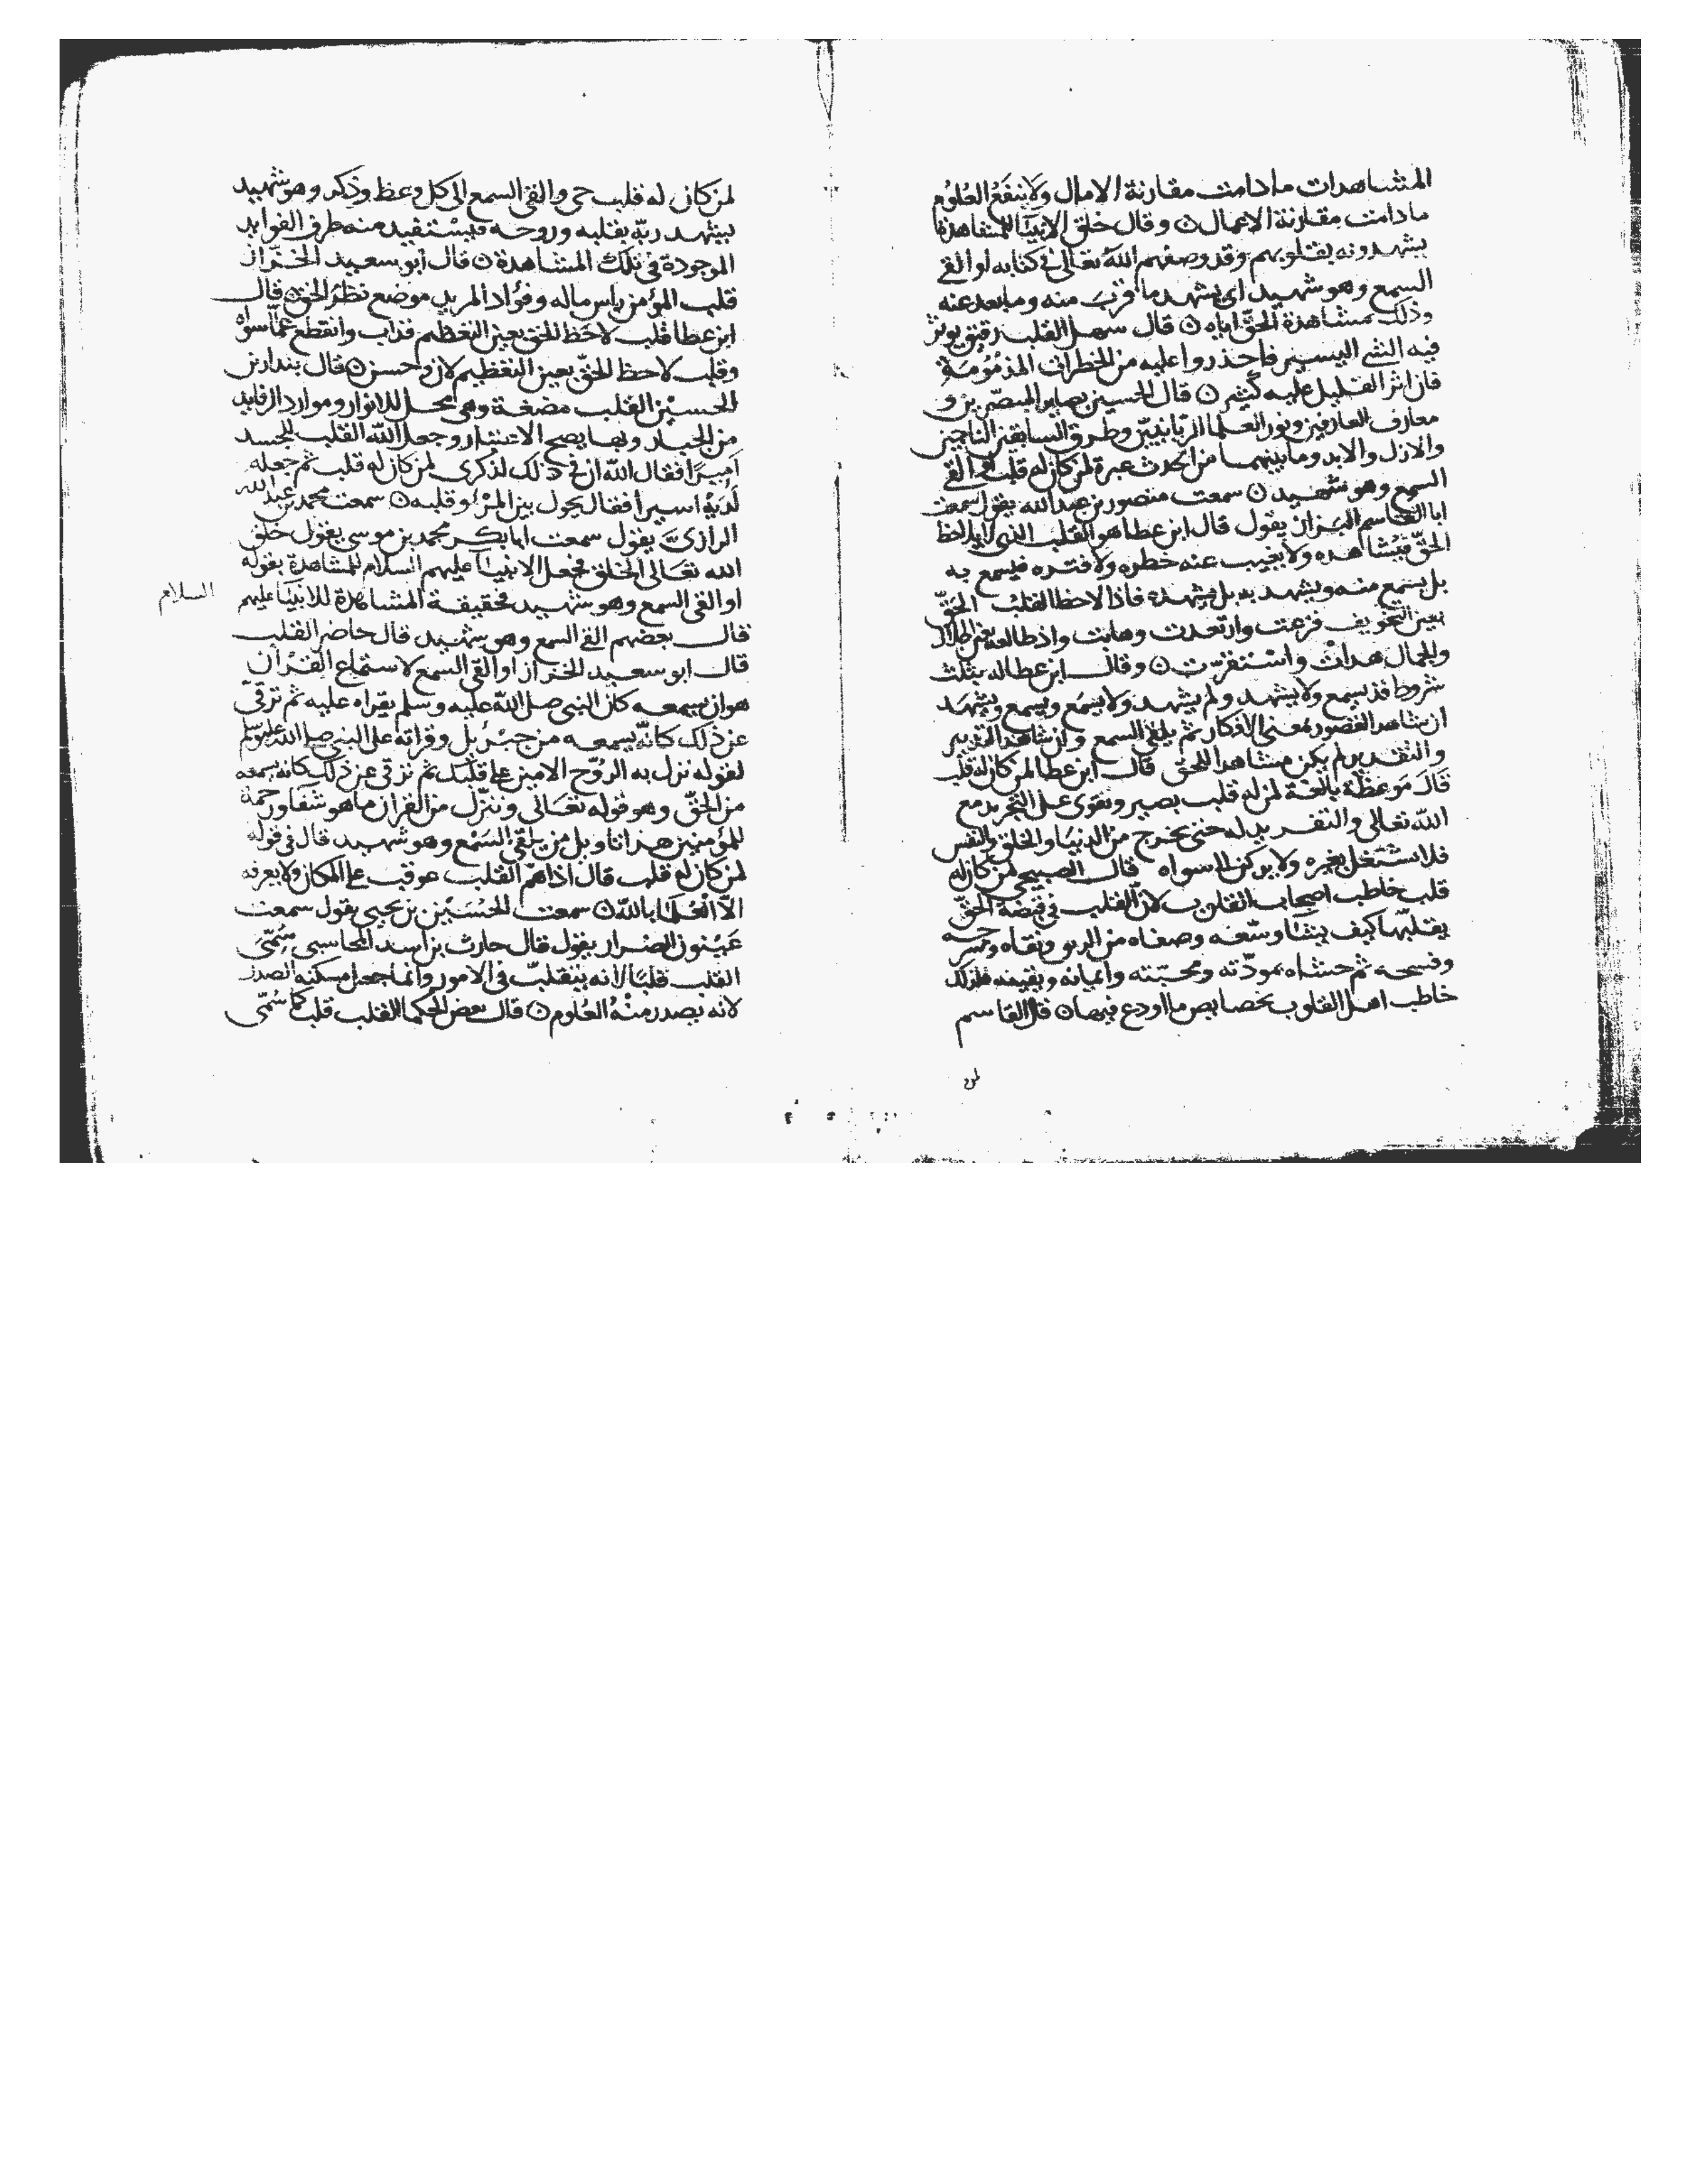 المشاهدات مادامت مقارنة الامال ولا ينفع العلوم
مادامت مقارنة الاعمال ن وقال خلق الانبيا للمشاهدة
يشهدونه بقلوبهم وقد وصفهم الله تعالى في كتابه او القى
السمع وهو شهيد اى يشهد ما قرب منه وما بعد عنه
وذلك مشاهدة الحق اياه ن قال سهل القلب رقيق يوثر
فيه الشى اليسير فاحذروا عليه من الخطرات المذمومة
فان اثر القليل عليه كثير ن قال الحسين بصاير المبصرين و
معارف العارفين ونور العلما الربانيين وطرق السابقين الناجين
والازل والابد وما بينهما من الحدث عبرة لمن كان له قلب او القى
السمع وهو شهيد ن سمعت منصور بن عبد الله يقول سمعت
ابا القاسم البزاز يقول قال ابن عطا هو القلب الذى يلاحظ
الحق فيشاهده ولا يغيب عنه خطره ولا فتره فيسمع به
بل يسمع منه ويشهد به بل يشهده فاذا لاحظ القلب الحق
بعين التخويف فزعت وارتعدت وهابت واذ طالعه بعين الجلال
والجمال هدات واستقرت ن وقال ابن عطا له بثلث
شروط قد يسمع ولا يشهد ولم يشهد ولا يسمع ويسمع ويشهد
ان شاهد القصور بمعنى الاذكار ثم يلقى السمع وان شاهد التدبير
والتقدير لم يكن مشاهدا للحق قال ابن عطا لمن كان له قلب
قال موعظة بالغة لمن له قلب بصير ويقوى على التجريد مع
الله تعالى والتفريد له حتى يخرج من الدنيا والخلق والنفس
فلا يشتغل بغيره ولا يركن الى سواه قال الصبيحى لمن كان له
قلب خاطب اصحاب القلوب لان القلب في قبضة الحق
يقلبها كيف يشا وسعه وصفاه من الربو ونقاه وشرحه
وفسحه ثم حشاه بمودته ومحبته وايمانه ويقينه فلذلك
خاطب اهل القلوب بخصايص ما اودع فيها ن قال القاسم
لمن كان له قلب حى والقى السمع الى كل وعظ وذكر وهو شهيد
يشهد ربه بقلبه وروحه فيستفيد منه طرف الفوايد
الموجودة في تلك المشاهدة ن قال ابو سعيد الخراز
قلب المؤمن راس ماله وفؤاد المريد موضع نظر الحق ن قال
ابن عطا قلب لاحظ الحق بعين التعظيم فذاب وانقطع عما سواه
وقلب لاحظ الحق بعين التعظيم لان وحسن ن قال بندار بن
الحسين القلب مضغة وهى محل للانوار وموارد الزوايد
من الجبار وبها يصح الاعتبار وجعل الله القلب للجسد
اميرا فقال الله ان في ذلك لذكرى لمن كان له قلب ثم جعله
لديه اسيرا فقال يحول بين المرء وقلبه ن سمعت محمد بن عبد الله
الرازى يقول سمعت ابا بكر محمد بن موسى يقول خلق
الله تعالى الخلق فجعل الانبيا عليهم السلام للمشاهدة بقوله
او القى السمع وهو شهيد فحقيقة المشاهدة للانبيا عليهم
السلام
قال بعضهم القى السمع وهو شهيد قال حاضر القلب
قال ابو سعيد الخراز او القى السمع لاستماع القرآن
هو ان يسمعه كان النبى صلى الله عليه وسلم يقراه عليه ثم ترقى
عن ذلك كانه يسمعه من جبرئيل وقراته على النبى صلى الله عليه وسلم
لقوله نزل به الروح الامين على قلبك ثم ترقى عن ذلك كانه يسمعه
من الحق وهو قوله تعالى وننزل من القران ما هو شفا ورحمة
للمؤمنين هذا تاويل من يلقى السمع وهو شهيد قال في قوله
لمن كان له قلب قال اذا هم القلب عوقب على المكان ولا يعرفه
الا العلما بالله ن سمعت الحسين بن يحيى يقول سمعت
عبنوز الضرار يقول قال حارث بن اسد المحاسبى سمى
القلب قلبا لانه يتقلب في الامور وانما جعل مسكنه الصدر
لانه يصدر منه العلوم ن قال بعض الحكما القلب قلب كما سمى